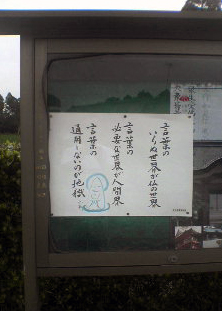 言葉の
いらぬ世界が仏の世界
言葉の
必要な世界が人間界
言葉の
通用しないのが地獄